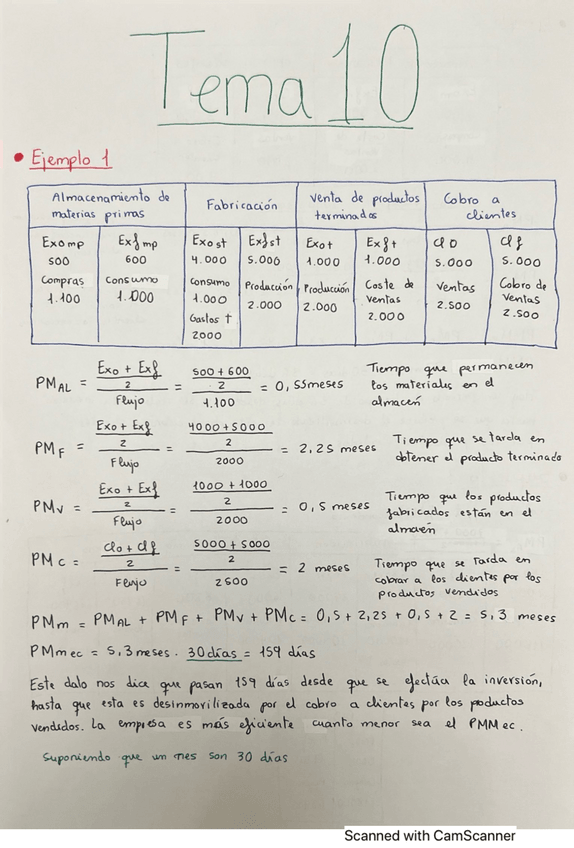 Tema 10
• Ejemplo 1
Almacenamiento de materias primas | Fabricación | Venta de productos terminados | Cobro a clientes
Exo mp | Exf mp | Exo st | Exf st | Exo t | Exf t | Cl 0 | Cl f
500 | 600 | 4.000 | 5.000 | 1.000 | 1.000 | 5.000 | 5.000
Compras | Consumo | Consumo | Producción | Producción | Coste de ventas | Ventas | Cobro de ventas
1.100 | 1.000 | 1.000 | 2.000 | 2.000 | 2.000 | 2.500 | 2.500
Gastos t
2000
PM AL = ((Exo + Exf) / 2) / Flujo = ((500 + 600) / 2) / 1.100 = 0,55 meses
Tiempo que permanecen
los materiales en el
almacén
PM F = ((Exo + Exf) / 2) / Flujo = ((4000 + 5000) / 2) / 2000 = 2,25 meses
Tiempo que se tarda en
obtener el producto terminado
PM V = ((Exo + Exf) / 2) / Flujo = ((1000 + 1000) / 2) / 2000 = 0,5 meses
Tiempo que los productos
fabricados están en el
almacén
PM C = ((Clo + Clf) / 2) / Flujo = ((5000 + 5000) / 2) / 2500 = 2 meses
Tiempo que se tarda en
cobrar a los clientes por los
productos vendidos
PMm = PM AL + PM F + PM V + PM C = 0,5 + 2,25 + 0,5 + 2 = 5,3 meses
PMm ec = 5,3 meses · 30 días = 159 días
Este dato nos dice que pasan 159 días desde que se efectúa la inversión,
hasta que esta es desinmovilizada por el cobro a clientes por los productos
vendidos. La empresa es más eficiente cuanto menor sea el PMM ec.
Suponiendo que un mes son 30 días
Scanned with CamScanner